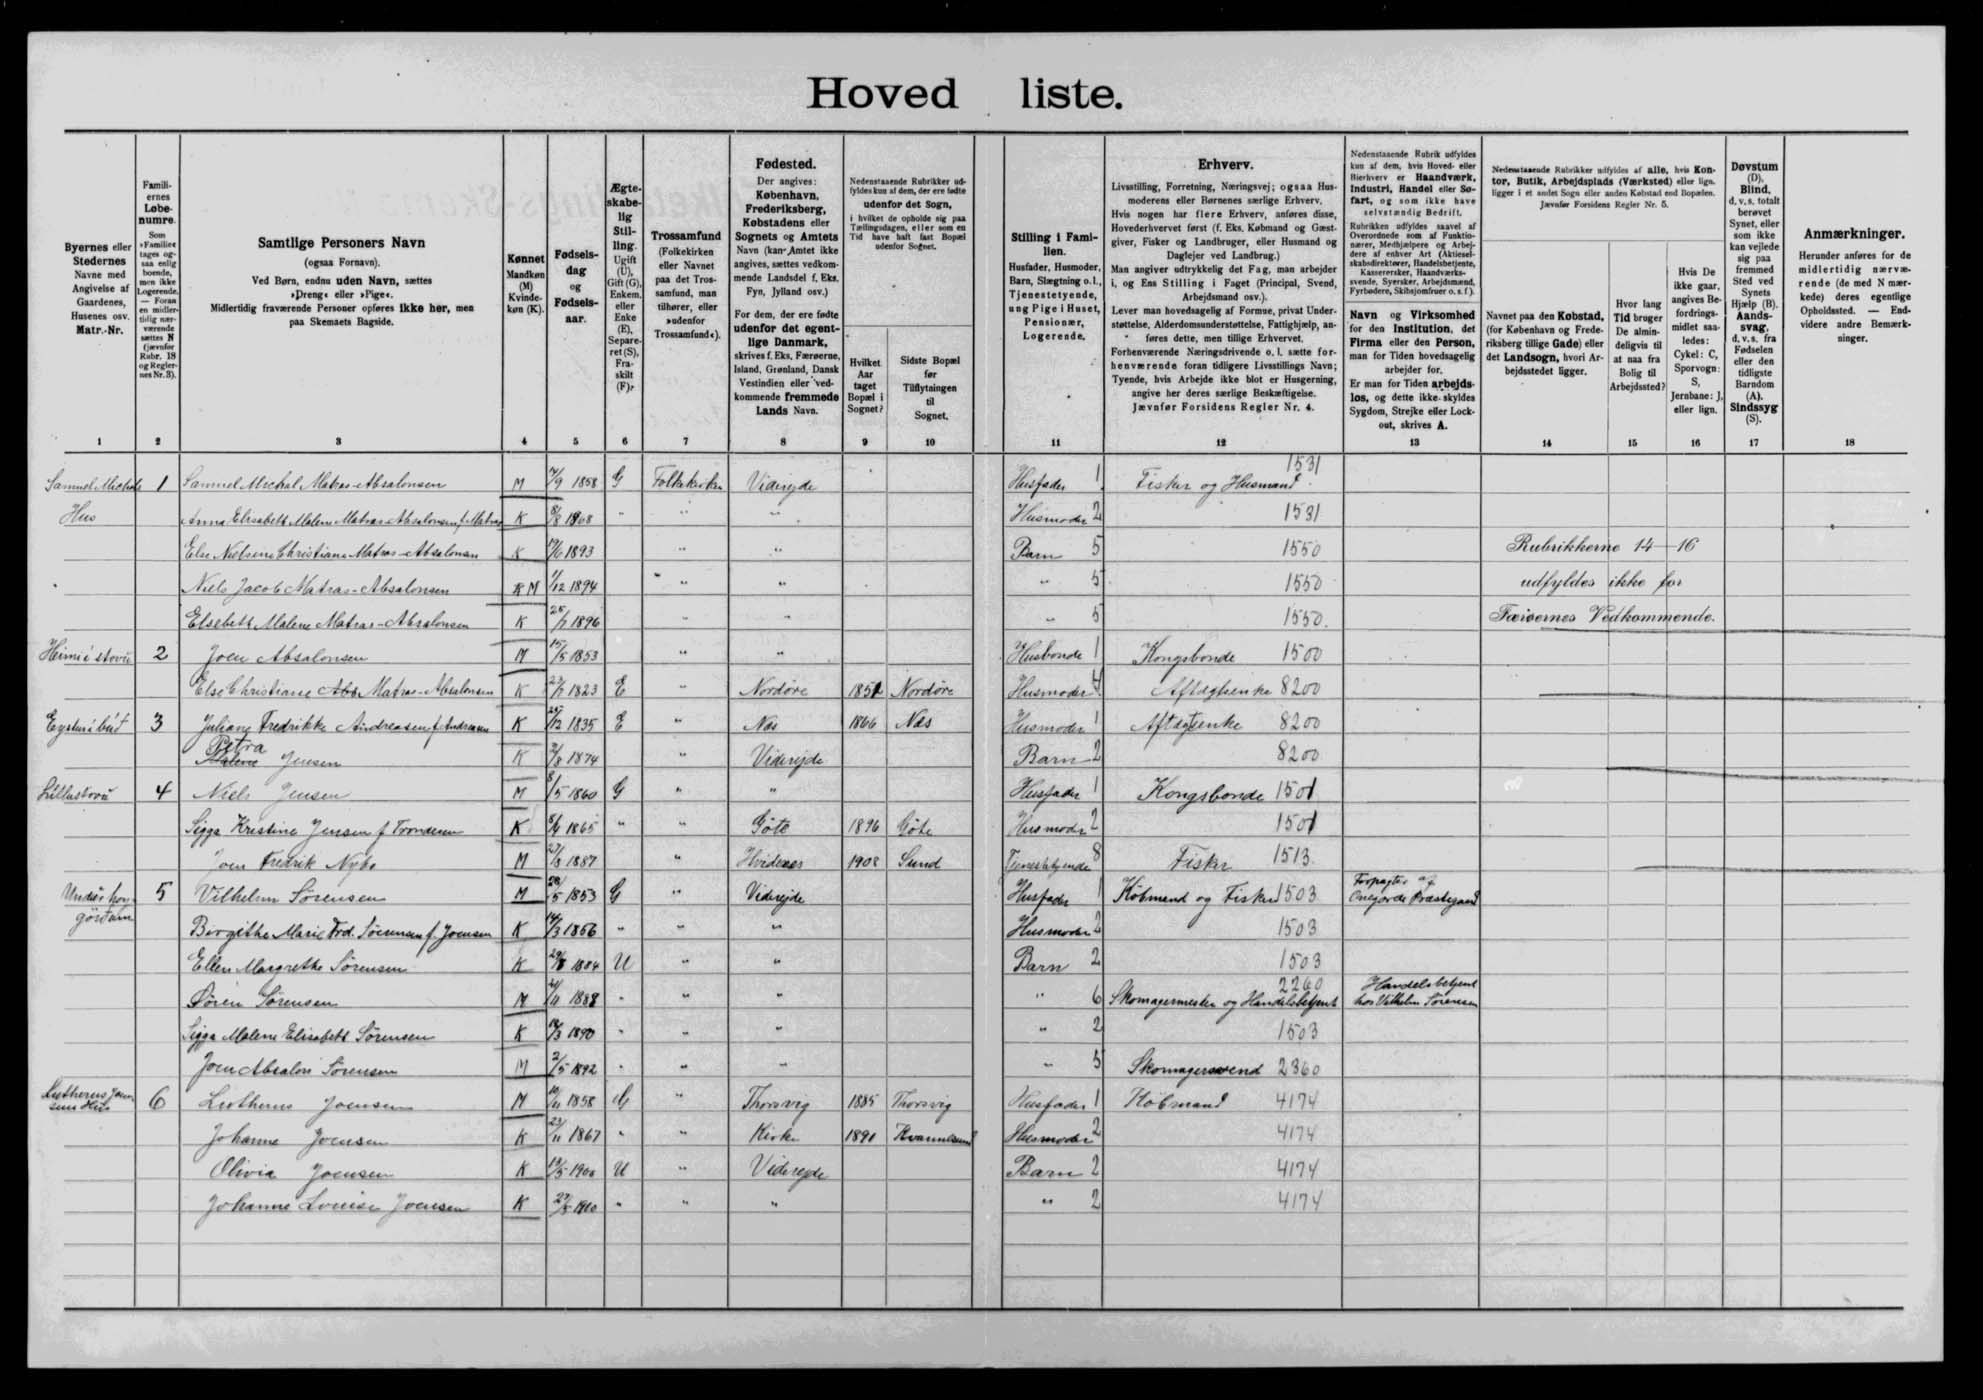 Hoved liste.
Byernes eller Stedernes Navne med Angivelse af Gaardenes, Husenes osv. Matr.-Nr.
Familiernes Løbenumre. Som »Familie« tages ogsaa enlig boende, men ikke Logerende. — Foran en midlertidig nærværende sættes N (jævnfør Rubr. 18 og Regler-nes Nr. 3).
Samtlige Personers Navn
(ogsaa Fornavn).
Ved Børn, endnu uden Navn, sættes
»Dreng« eller »Pige«.
Midlertidig fraværende Personer opføres ikke her, men
paa Skemaets Bagside.
Kønnet Mandkøn (M) Kvindekøn (K).
Fødselsdag og Fødselsaar.
Ægteskabelig Stilling. Ugift (U), Gift (G), Enkem. eller Enke (E), Separeret (S), Fraskilt (F).
Trossamfund
(Folkekirken eller Navnet paa det Trossamfund, man tilhører, eller »udenfor Trossamfund«).
Fødested.
Der angives:
København, Frederiksberg, Købstadens eller Sognets og Amtets Navn (kan Amtet ikke angives, sættes vedkommende Landsdel f. Eks. Fyn, Jylland osv.)
For dem, der ere fødte udenfor det egentlige Danmark, skrives f. Eks. Færøerne, Island, Grønland, Dansk Vestindien eller vedkommende fremmede Lands Navn.
Nedenstaaende Rubrikker udfyldes kun af dem, der ere fødte udenfor det Sogn, i hvilket de opholde sig paa Tællingsdagen, eller som en Tid have haft fast Bopæl udenfor Sognet.
Hvilket Aar taget Bopæl i Sognet?
Sidste Bopæl før Tilflytningen til Sognet.
Stilling i Familien.
Husfader, Husmoder, Barn, Slægtning o.l., Tjenestetyende, ung Pige i Huset, Pensionær, Logerende.
Erhverv.
Livsstilling, Forretning, Næringsvej; ogsaa Husmoderens eller Børnenes særlige Erhverv.
Hvis nogen har flere Erhverv, anføres disse, Hovederhvervet først (f. Eks. Købmand og Gæstgiver, Fisker og Landbruger, eller Husmand og Daglejer ved Landbrug.)
Man angiver udtrykkelig det Fag, man arbejder i, og Ens Stilling i Faget (Principal, Svend, Arbejdsmand osv.).
Lever man hovedsagelig af Formue, privat Understøttelse, Alderdomsunderstøttelse, Fattighjælp, anføres dette, men tillige Erhvervet.
Forhenværende Næringsdrivende o. l. sætte forhenværende foran tidligere Livsstillings Navn;
Tyende, hvis Arbejde ikke blot er Husgerning, angive her deres særlige Beskæftigelse.
Jævnfør Forsidens Regler Nr. 4.
Nedenstaaende Rubrik udfyldes kun af dem, hvis Hoved- eller Bierhverv er Haandværk, Industri, Handel eller Søfart, og som ikke have selvstændig Bedrift.
Rubrikken udfyldes saavel af Overordnede som af Funktionærer, Medhjælpere og Arbejdere af enhver Art (Aktieselskabsdirektører, Handelsbetjente, Kasserersker, Haandværkssvende, Syersker, Arbejdsmænd, Fyrbødere, Skibsjomfruer o. s. f.).
Navn og Virksomhed for den Institution, det Firma eller den Person, man for Tiden hovedsagelig arbejder for.
Er man for Tiden arbejdsløs, og dette ikke skyldes Sygdom, Strejke eller Lockout, skrives A.
Nedenstaaende Rubrikker udfyldes af alle, hvis Kontor, Butik, Arbejdsplads (Værksted) eller lign. ligger i et andet Sogn eller anden Købstad end Bopælen.
Jævnfør Forsidens Regler Nr. 5.
Navnet paa den Købstad, (for København og Frederiksberg tillige Gade) eller det Landsogn, hvori Arbejdsstedet ligger.
Hvor lang Tid bruger De almindeligvis til at naa fra Bolig til Arbejdssted?
Hvis De ikke gaar, angives Befordringsmidlet saaledes: Cykel: C, Sporvogn: S, Jernbane: J, eller lign.
Døvstum (D). Blind, d.v.s. totalt berøvet Synet, eller som ikke kan vejlede sig paa fremmed Sted ved Synets Hjælp (B). Aandssvag, d.v.s. fra Fødselen eller den tidligste Barndom (A). Sindssyg (S).
Anmærkninger.
Herunder anføres for de midlertidig nærværende (de med N mærkede) deres egentlige Opholdssted. — Endvidere andre Bemærkninger.
1 2 3 4 5 6 7 8 9 10 11 12 13 14 15 16 17 18
Samuel Michals 1 Samuel Michal Matras-Absalonsen M 1858 G Folkekirken Viderejde Husfader 1 Fisker og Husmand 1531
Hus Anna Elisabeth Malene Matras-Absalonsen f. Matras K 1868 " " " Husmoder 2 1531
Else Nielsine Christiane Matras-Absalonsen K 19/6 1893 " " Barn 5 1550 Rubrikkerne 14—16
Niels Jacob Matras-Absalonsen M 1/12 1894 " " " 5 1550 udfyldes ikke for
Elsebeth Malene Matras-Absalonsen K 1896 " " " 5 1550 Færøernes Vedkommende.
Heimi í stovu 2 Joen Absalonsen M 15/5 1853 " " Husbonde 1 Kongsbonde 1500
Else Christiane Matras-Absalonsen K 1823 E " Nordøre 1851 Nordøre Husmoder 4 Aftægtsenke 8200
3 Juliane Fredrikke Andreasen f. Andreasen K 1835 E " Næs 1866 Næs Husmoder 1 Aftægtsenke 8200
Petra Malene Jensen K 1874 " Viderejde Barn 2 8200
Lillustovu 4 Niels Jensen M 8/5 1860 G " " Husfader 1 Kongsbonde 1501
Sigga Kristine Jensen f. Trondesen K 1865 " " Göte 1896 Göte Husmoder 2 1501
Joen Fredrik Nybo M 1887 " Hvidenes 1908 Sund Tjenestetyende 8 Fisker 1513
5 Vilhelm Sørensen M 1853 G " Viderejde Husfader 1 Købmand og Fisker 1503 Forpagter af Onegjorde Præstegaard
Birgithe Marie Frd. Sørensen f. Joensen K 14/3 1856 " " " Husmoder 2 1503
Ellen Margrethe Sørensen K 1884 U " " Barn 2 1503
Sören Sørensen M 1888 " " " " 6 Skomagermester og Handelsbetjent 2260 Handelsbetjent hos Vilhelm Sørensen
Sigga Malene Elisabeth Sørensen K 1890 " " " " 2 1503
Joen Absalon Sørensen M 2/5 1892 " " " " 5 Skomagersvend 2360
6 Liotherus Joensen M 10/11 1858 G " Thorsvig 1885 Thorsvig Husfader 1 Købmand 4174
Johanne Joensen K 23/11 1867 " " Kirke 1890 Kvannesund Husmoder 2 4174
Olivia Joensen K 1900 U " Viderejde Barn 2 4174
Johanne Lovise Joensen K 1910 " " " " 2 4174